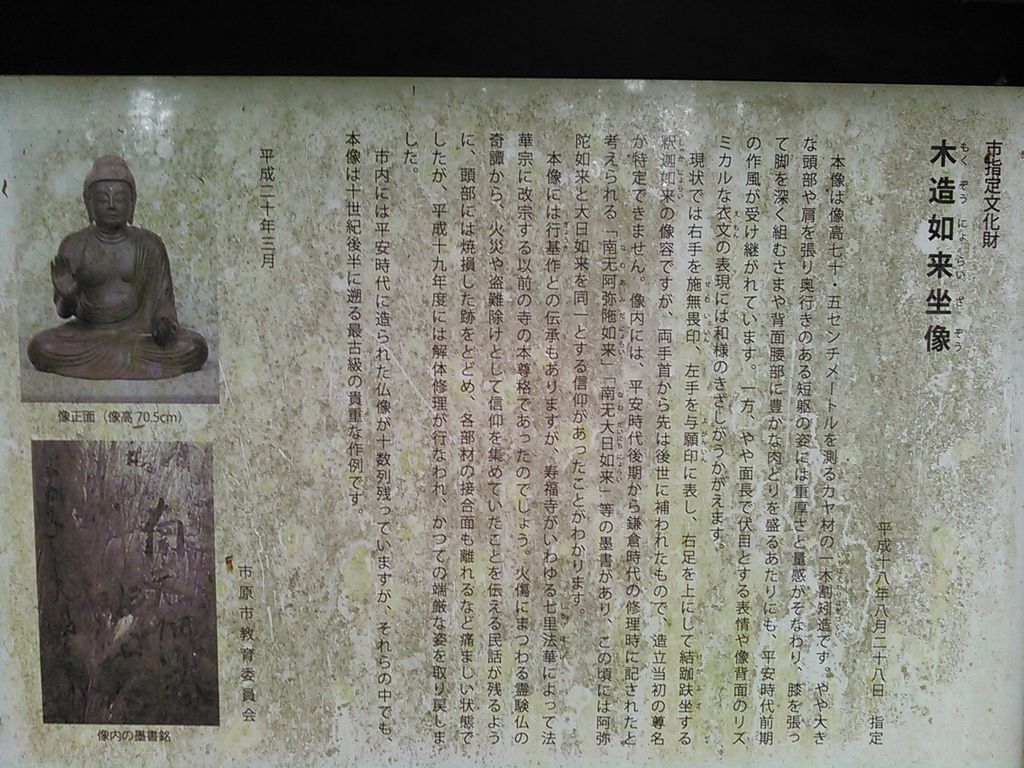 市指定文化財
木造如来坐像
もくぞうにょらいざぞう
平成十八年八月二十八日 指定
本像は像高七十・五センチメートルを測るカヤ材の一木割矧造です。やや大き
な頭部や肩を張り奥行きのある短躯の姿には重厚さと量感がそなわり、膝を張っ
て脚を深く組むさまや背面腰部に豊かな肉どりを盛るあたりにも、平安時代前期
の作風が受け継がれています。一方、やや面長で伏目とする表情や像背面のリズ
ミカルな衣文の表現には和様のきざしがうかがえます。
現状では右手を施無畏印、左手を与願印に表し、右足を上にして結跏趺坐する
釈迦如来の像容ですが、両手首から先は後世に補われたもので、造立当初の尊名
が特定できません。像内には、平安時代後期から鎌倉時代の修理時に記されたと
考えられる「南无阿弥陁如来」「南无大日如来」等の墨書があり、この頃には阿弥
陀如来と大日如来を同一とする信仰があったことがわかります。
本像には行基作との伝承もありますが、寿福寺がいわゆる七里法華によって法
華宗に改宗する以前の寺の本尊格であったのでしょう。火傷にまつわる霊験仏の
奇譚から、火災や盗難除けとして信仰を集めていたことを伝える民話が残るよう
に、頭部には焼損した跡をとどめ、各部材の接合面も離れるなど痛ましい状態で
したが、平成十九年度には解体修理が行なわれ、かつての端厳な姿を取り戻しま
した。
市内には平安時代に造られた仏像が十数列残っていますが、それらの中でも、
本像は十世紀後半に遡る最古級の貴重な作例です。
平成二十年三月
市原市教育委員会
像正面（像高 70.5cm）
像内の墨書銘